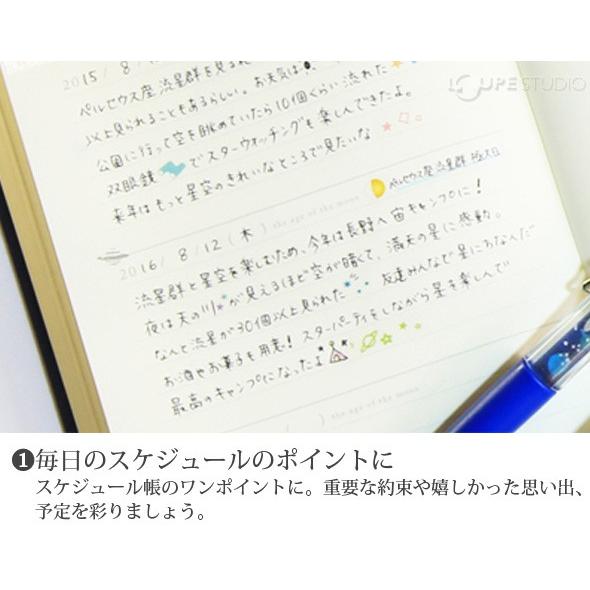 2015/8/
LOUPE STUDIO
ペルセウス座流星群を見られ
以上見られることもあるらしい。お天気は
公園に行って空を眺めていたら10個くらい流れた
双眼鏡でスターウォッチングも楽しんできたよ。
来年はもっと星空のきれいなところで見たいな
ペルセウス座流星群 極大日
the age of the moon
2016/8/12(木)
流星群と星空を楽しむため、今年は長野へ宙キャンプに!
夜は天の川が見えるほど空が暗くて、満天の星に感動。
なんと流星が30個以上見られた 友達みんなで星にちなんだ
お酒やお菓子を用意! スターパーティをしながら星を楽しんで
最高のキャンプになったよ
) the age of the moon
❶毎日のスケジュールのポイントに
スケジュール帳のワンポイントに。重要な約束や嬉しかった思い出、
予定を彩りましょう。